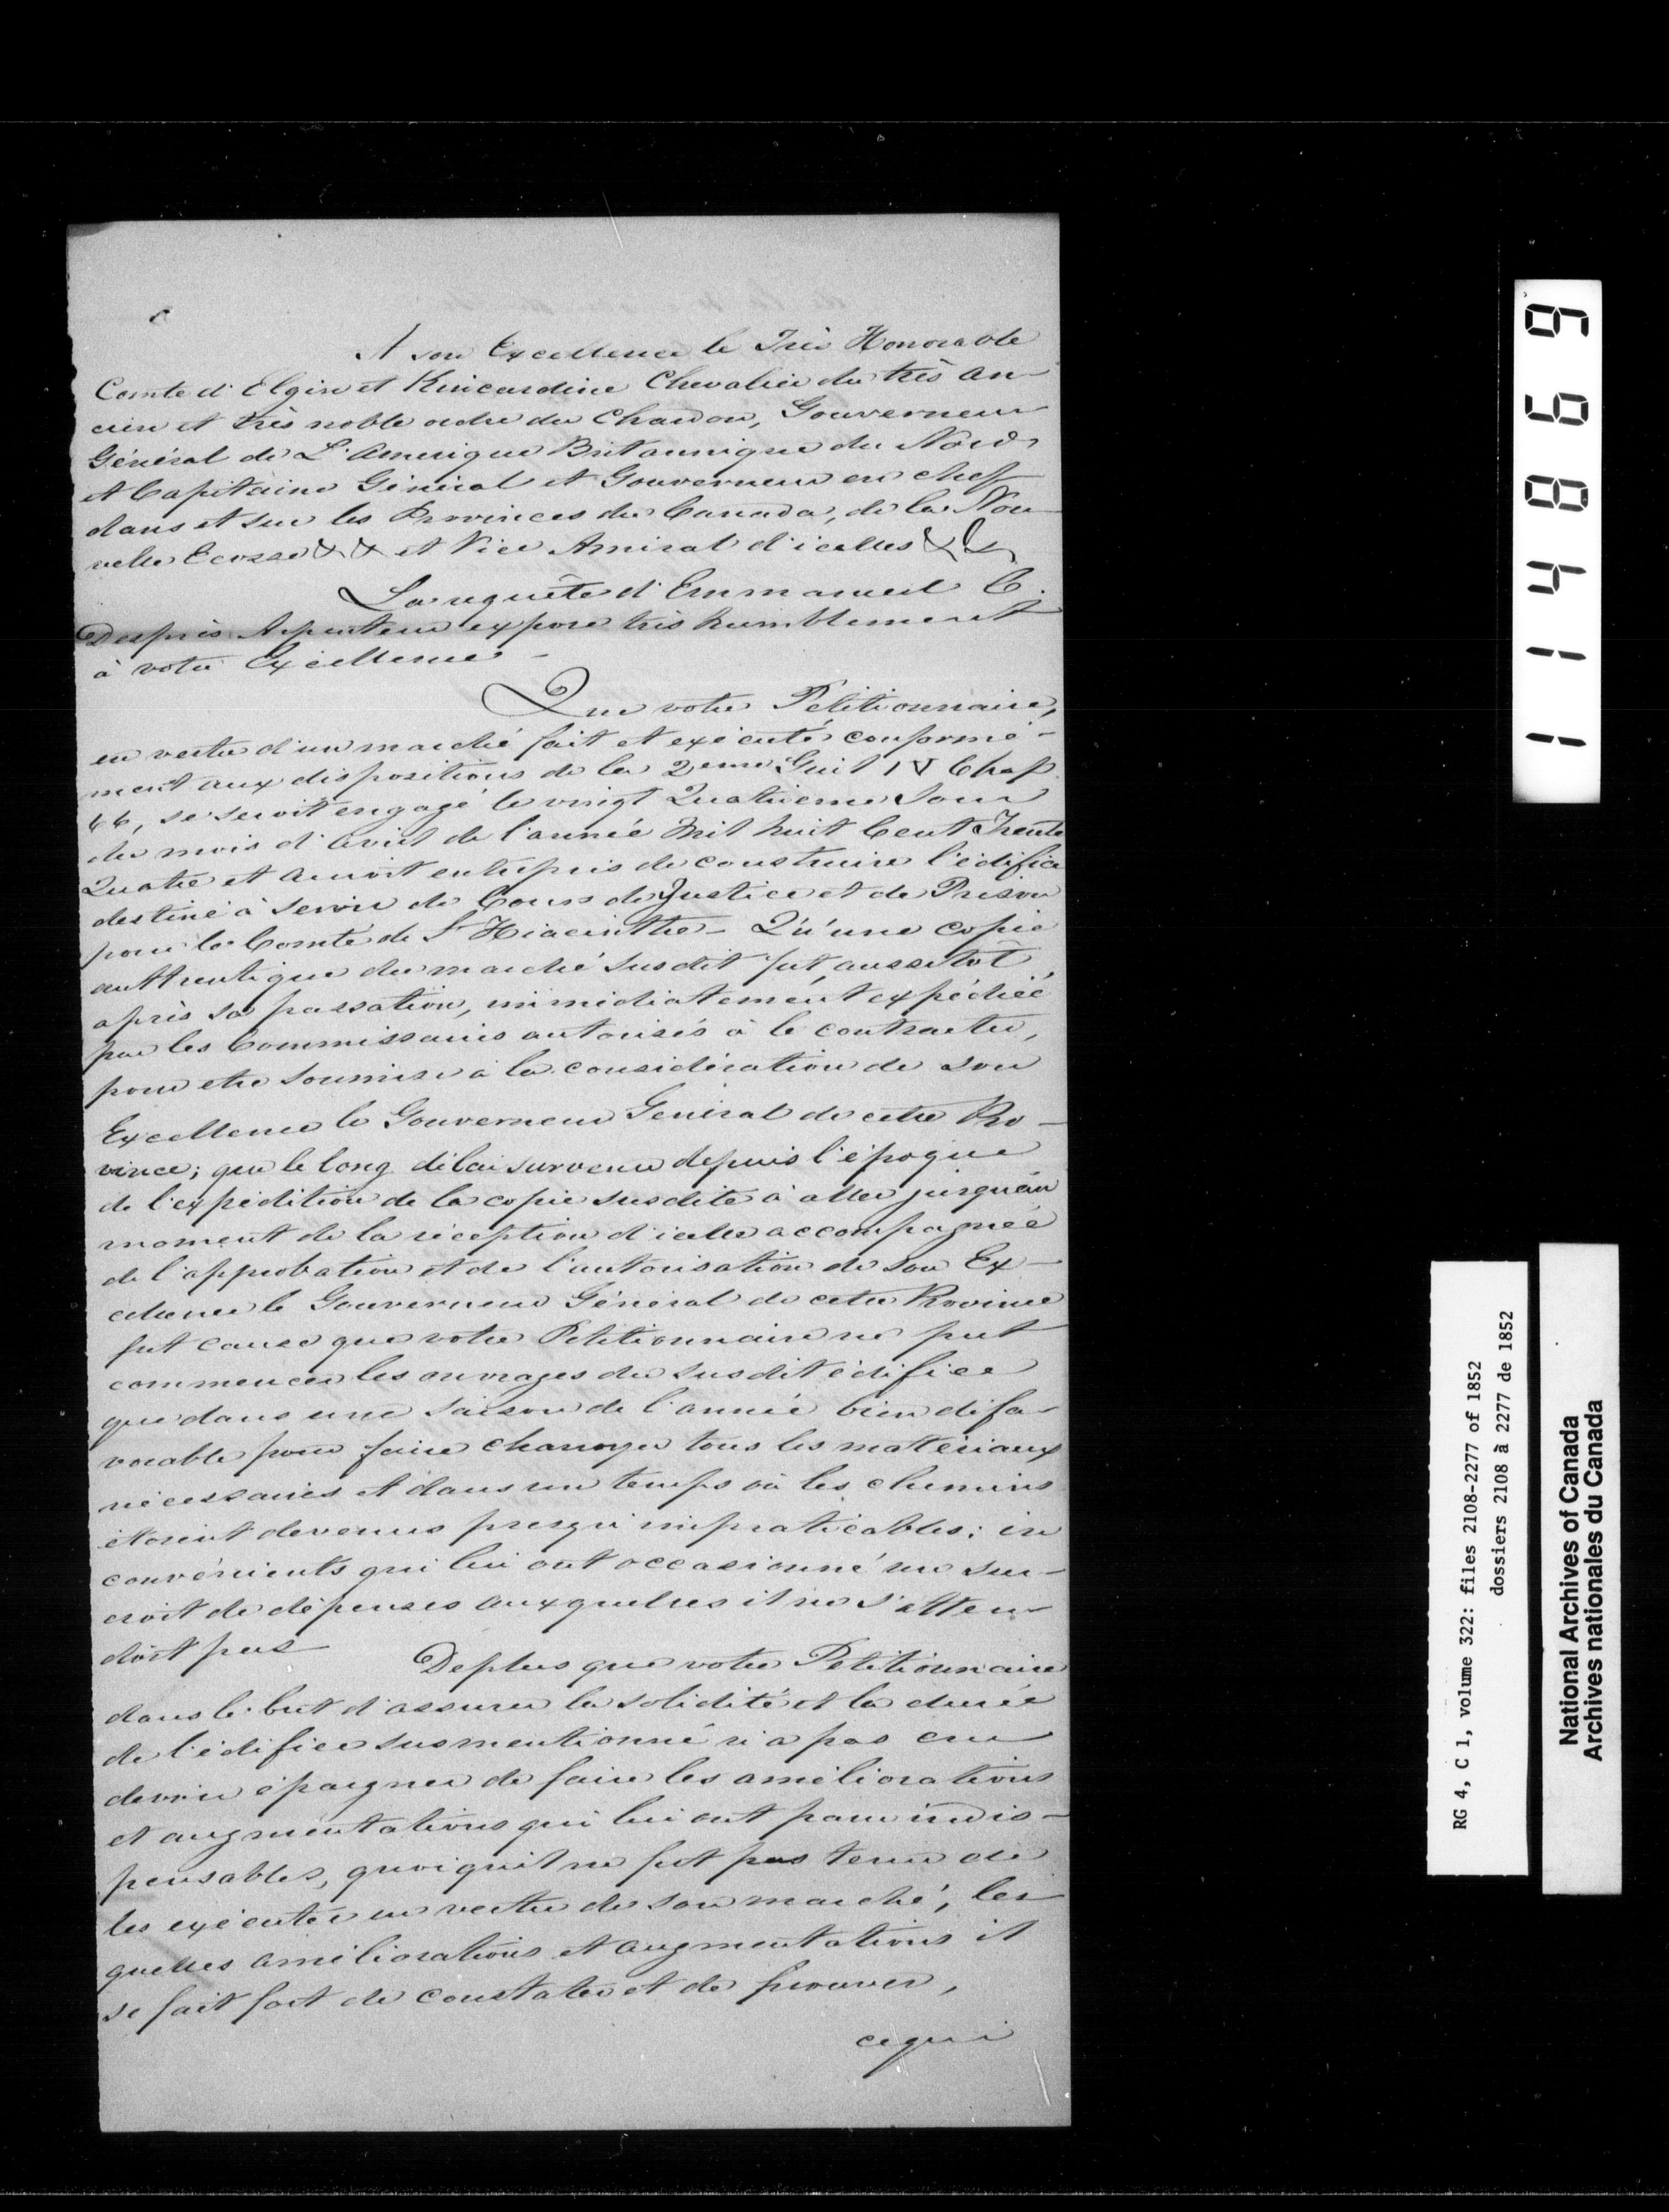 A son Excellence le Très Honorable
Comte d'Elgin et Kincardine Chevalier du très an-
cien et très noble ordre du Chardon, Gouverneur
Général de L'Amerique Britannique du Nord
et Capitaine Général et Gouverneur en chef
dans et sur les Provinces du Canada, de la Nou-
velle Ecosse & & et Vice Amiral d'icelles & &
La requête d'Emmanuel C.
Després Arpenteur expose très humblement
à votre Excellence -
Que votre Pétitionnaire,
en vertu d'un marché fait et exécuté conformé-
ment aux dispositions de la 2eme Guil IV Chap.
66, se seroit engagé le vingt Quatrieme Jour
du mois d'avril de l'année Mil huit Cent Trente
Quatre et auroit entrepris de construire l'édifice
destiné à servir de Cour de Justice et de Prison
pour le Comté de St Hiacinthe - Qu'une copie
authentique du marché susdit fut, aussitôt
après sa passation, immédiatement expédiée
par les Commissaires autorisés à le contracter,
pour etre soumise à la considération de son
Excellence le Gouverneur Général de cette Pro-
vince; que le long délai survenu depuis l'époque
de l'expédition de la copie susdite à aller jusqu'au
moment de la réception d'icelle accompagnée
de l'approbation et de l'autorisation de Son Ex-
cellence le Gouverneur Général de cette Province
fut cause que votre Pétitionnaire ne put
commencer les ouvrages du susdit édifice
que dans une saison de l'année bien défa-
vorable pour faire charroyer tous les matériaux
nécessaires et dans un temps où les chemins
étoient devenus presqu'impraticables; in
convénients qui lui ont occasionné un sur-
croit de dépenses auxquelles il ne s'atten-
doit pas
De plus que votre Pétitionnaire
dans le but d'assurer la solidité et la durée
de l'édifice susmentionné n'a pas cru
devoir épargner de faire les améliorations
et augmentations qui lui ont paru indis-
pensables, quoiqu'il ne fut pas tenu de
les exécuter en vertu de son marché, les
quelles améliorations et augmentations il
se fait fort de constater et de prouver,
ce qui
114869
RG 4, C 1, volume 322: files 2108-2277 of 1852
dossiers 2108 à 2277 de 1852
National Archives of Canada
Archives nationales du Canada